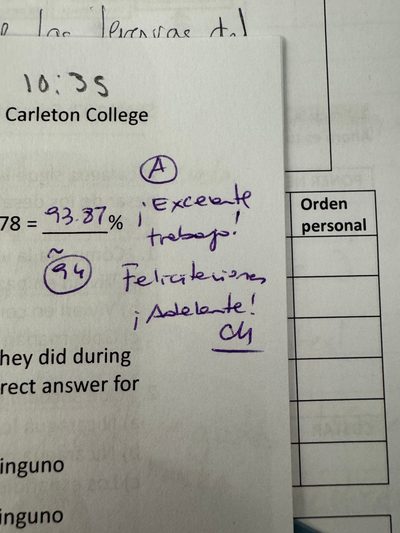 las
10:35
Carleton College
A
78 = 93.87%
¡Excelente
trabajo!
Orden
personal
~
94
Felicitaciones
¡Adelante!
CH
hey did during
rect answer for
inguno
inguno